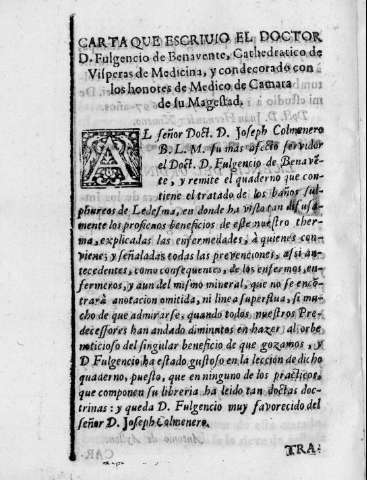 CARTA QUE ESCRIVIO EL DOCTOR
D. Fulgencio de Benavente, Cathedratico de
Visperas de Medicina, y condecorado con
los honores de Medico de Camara
de su Magestad.
AL señor Doct. D. Joseph Colmenero
B. L. M. su mas afecto servidor
el Doct. D. Fulgencio de Benavẽ-
te, y remite el quaderno que con-
tiene el tratado de los baños sul-
phureos de Ledesma, en donde ha vista tan difusa-
mente los proficuos beneficios de este nuestro ther-
ma, explicadas las enfermedades, à quienes con-
viene; y señaladas todas las prevenciones, assi an-
tecedentes, como consequentes, de los enfermos, en-
fermeros, y aun del mismo mineral, que no se encõ-
trarà anotacion omitida, ni linea superflua, si mu-
cho de que admirarse, quando todos nuestros Pre-
decessores han andado diminutos en hazer al orbe
noticioso del singular beneficio de que gozamos, y
D Fulgencio ha estado gustoso en la leccion de dicho
quaderno, puesto, que en ninguno de los practicos,
que componen su libreria ha leido tan doctas doc-
trinas: y queda D. Fulgencio muy favorecido del
señor D. Joseph Colmenero.
TRA-